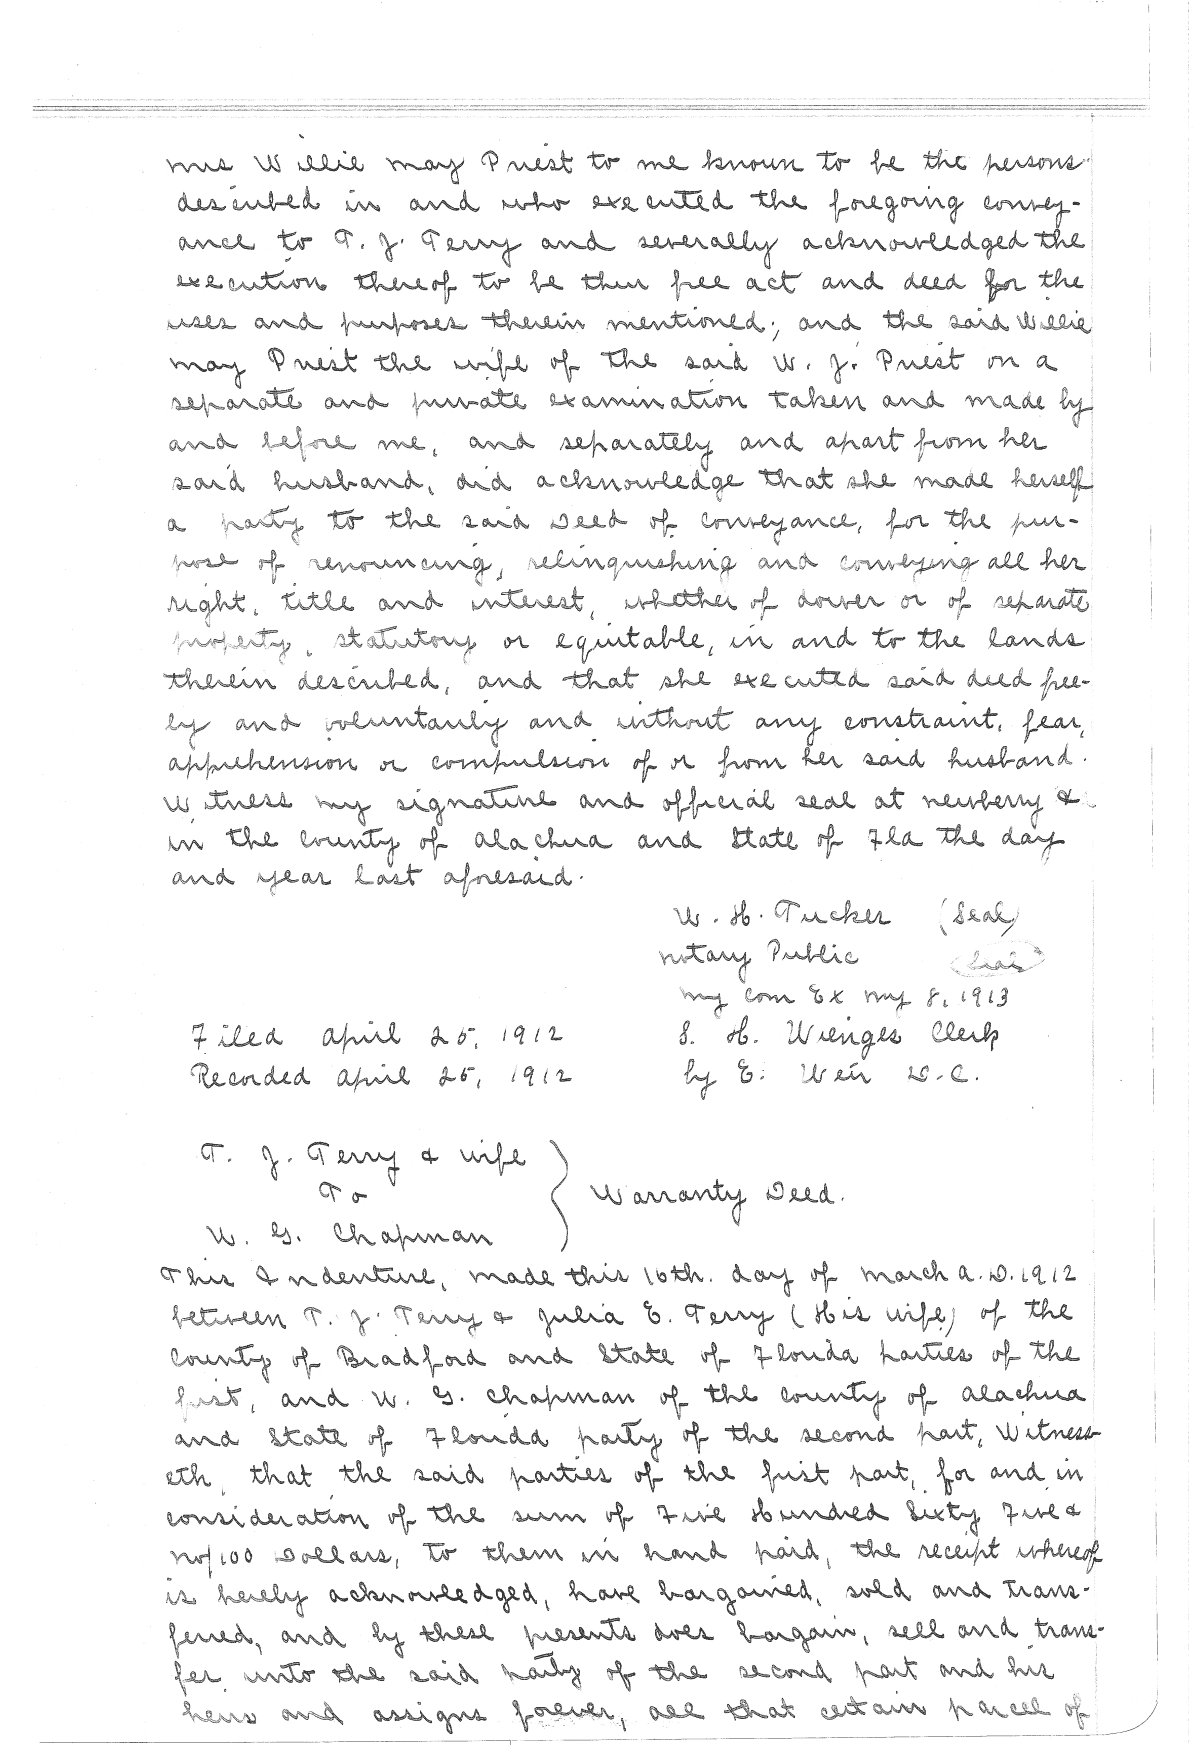 mrs Willie may Priest to me known to be the persons
described in and who executed the foregoing convey-
ance to T. J. Terry and severally acknowledged the
execution thereof to be their free act and deed for the
uses and purposes therein mentioned; and the said Willie
may Priest the wife of the said W. J. Priest on a
separate and private examination taken and made by
and before me, and separately and apart from her
said husband, did acknowledge that she made herself
a party to the said Deed of conveyance, for the pur-
pose of renouncing, relinquishing and conveying all her
right, title and interest, whether of dower or of separate
property, statutory or equitable, in and to the lands
therein described, and that she executed said deed free-
ly and voluntarily and without any constraint, fear,
apprehension or compulsion of or from her said husband.
Witness my signature and official seal at newberry &
in the county of alachua and State of Fla the day
and year last aforesaid.
W. H. Tucker (Seal)
notary Public (Seal)
my com Ex my 8, 1913
Filed april 25, 1912 S. H. Wienges Clerk
Recorded april 25, 1912 by E. Weir D.C.
T. J. Terry & wife
To } Warranty Deed.
W. G. Chapman
This Indenture, made this 16th. day of march a.D. 1912
between T. J. Terry & Julia E. Terry (His wife) of the
County of Bradford and State of Florida parties of the
first, and W. G. Chapman of the county of alachua
and State of Florida party of the second part, Witness-
eth, that the said parties of the first part, for and in
consideration of the sum of Five Hundred Sixty Five &
no/100 Dollars, to them in hand paid, the receipt whereof
is hereby acknowledged, have bargained, sold and trans-
ferred, and by these presents does bargain, sell and trans-
fer unto the said party of the second part and his
heirs and assigns forever, all that certain parcel of